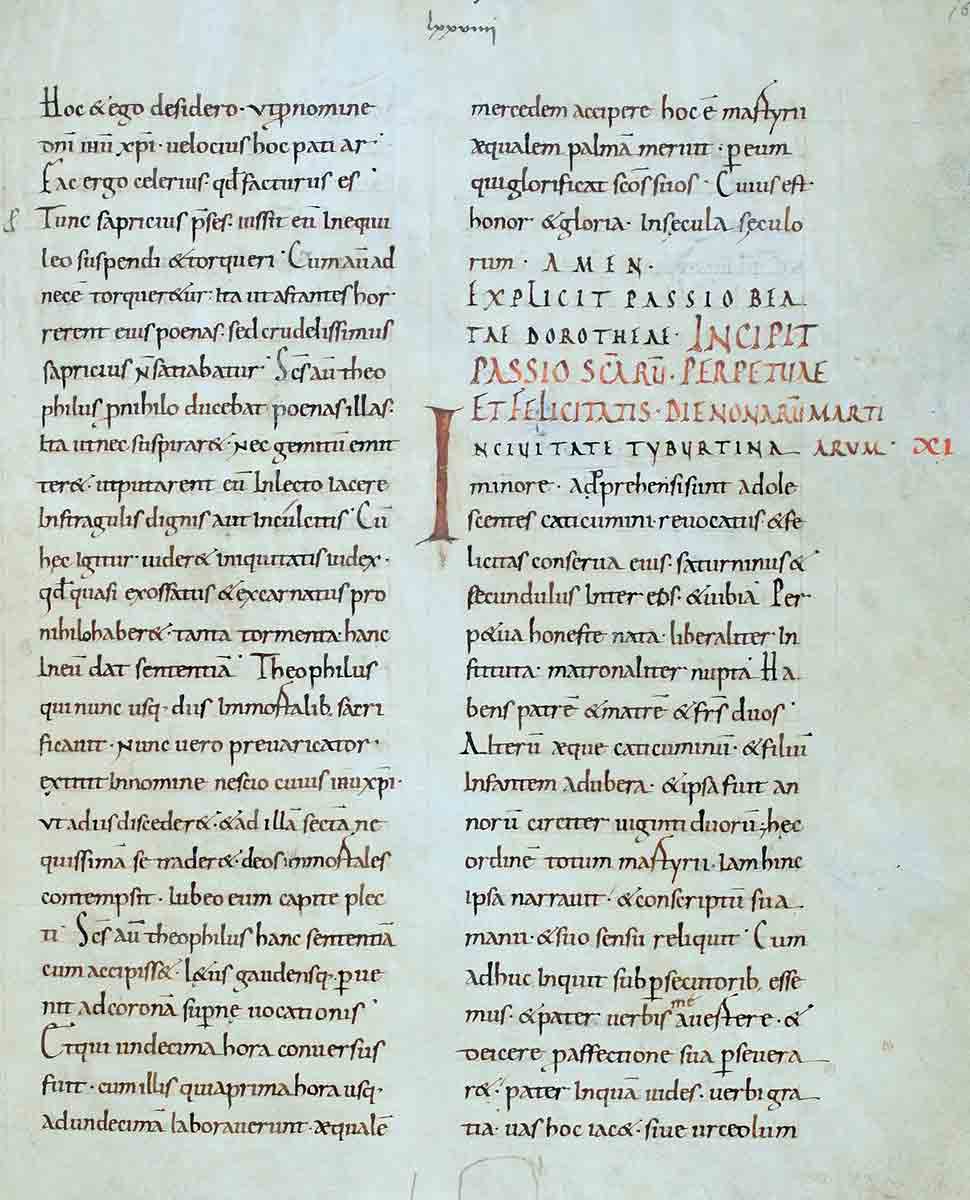 lxxviiii
Hoc & ego desidero · ut p nomine
dnī ihū xp̄i · uelocius hoc patiar ·
Fac ergo celerius · qđ facturus es ·
Tunc sapricius p̄ses · iussit eū In equu
leo suspendi & torqueri · Cum aū ad
necē torquer&ur : Ita ut astantes hor
rerent eius poenas · sed crudelissimus
sapricius n̄ satiabatur · Sc̄s aū theo
philus p nihilo ducebat poenas illas ·
Ita ut nec suspirar& · Nec gemitū emit
ter& · ut putarent eū In lecto Iacere
In stragulis dignis aut In culcitis · Cū
hec Igitur uider& iniquitatis iudex ·
qđ quasi exossatus & excarnatus pro
nihilo haber& · tanta tormenta · hanc
In eū dat sententiā · Theophilus
qui nunc usq · diis Immortalib, sacri
ficauit · Nunc uero preuaricator ·
extitit In nomine nescio cuius ihū xp̄i ·
ut a diis discceder& · & ad illā sectā ne
quissimā se trader& · deos immortales
contempsit · Iubeo eum capite plec
ti · Sc̄s aū theophilus hanc sententiā
cum accipiss& · l&us gaudensq · p ue
nit ad coronā supne uocationis ·
Et qui undecima hora conuersus
fuit · cum illis qui a prima hora usq ·
ad undecimā laborauerunt · æqualē
mercedem accipere hoc ē martyrii
æqualem palmā meruit · p eum
qui glorificat sc̄os suos · Cuius est
honor & gloria · In secula seculo
rum · AMEN ·
EXPLICIT PASSIO BEA
TAE DOROTHEAE · INCIPIT
PASSIO SC̄ARŪ · PERPETUAE
ET FELICITATIS · DIE NONARŪ MARTI
ARUM · XI
IN CIUITATE TYBURTINA
minore · Adprehensi sunt adole
scentes caticumini · reuocatus & fe
licitas conserua eius · saturninus &
secundulus Inter eos · & iubia Per
p&ua honeste nata · liberaliter In
stituta · matronaliter nupta · Ha
bens patrē & matrē & frs̄ duos ·
Alterū æque caticuminū · & filiū
Infantem ad ubera · & ipsa fuit an
norū circiter uiginti duorū ; hec
ordinē totum martyrii · Iam hinc
ipsa narrauit · & conscriptū sua
manu · & suo sensu reliquit · Cum
adhuc Inquit sub psecutorib, esse
mus · & pater uerbis me auertere · &
deicere p affectione sua pseuera
r& · pater Inquā uides · uerbi gra
tia · uas hoc iac& · siue urceolum